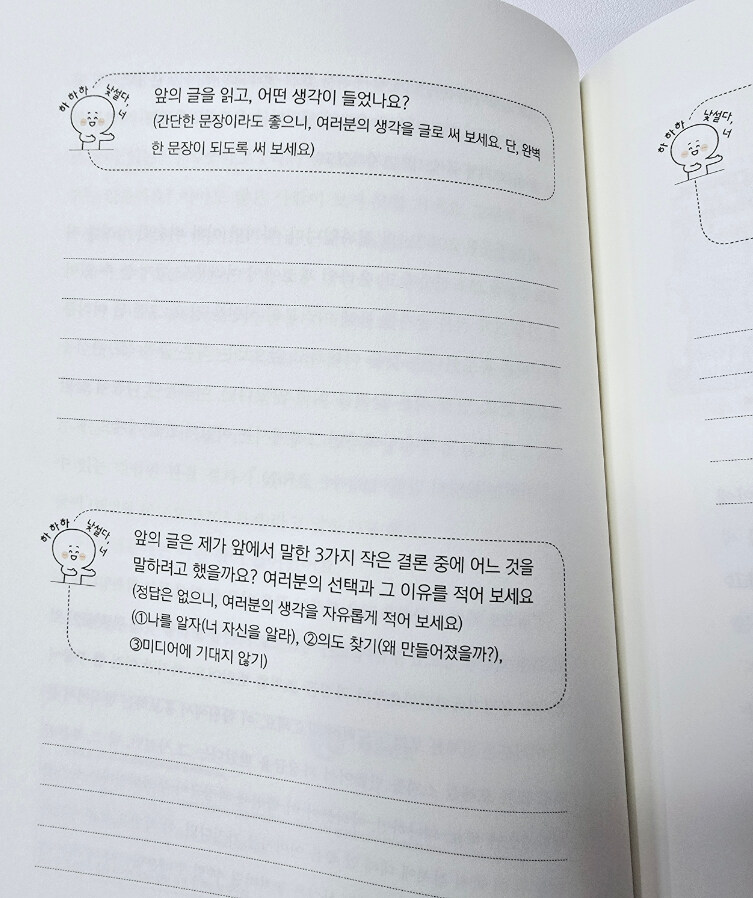 하하하 낯설다, 너
앞의 글을 읽고, 어떤 생각이 들었나요?
(간단한 문장이라도 좋으니, 여러분의 생각을 글로 써 보세요. 단, 완벽
한 문장이 되도록 써 보세요)
하하하 낯설다, 너
앞의 글은 제가 앞에서 말한 3가지 작은 결론 중에 어느 것을
말하려고 했을까요? 여러분의 선택과 그 이유를 적어 보세요
(정답은 없으니, 여러분의 생각을 자유롭게 적어 보세요)
(①나를 알자(너 자신을 알라), ②의도 찾기(왜 만들어졌을까?),
③미디어에 기대지 않기)
하하하 낯설다, 너